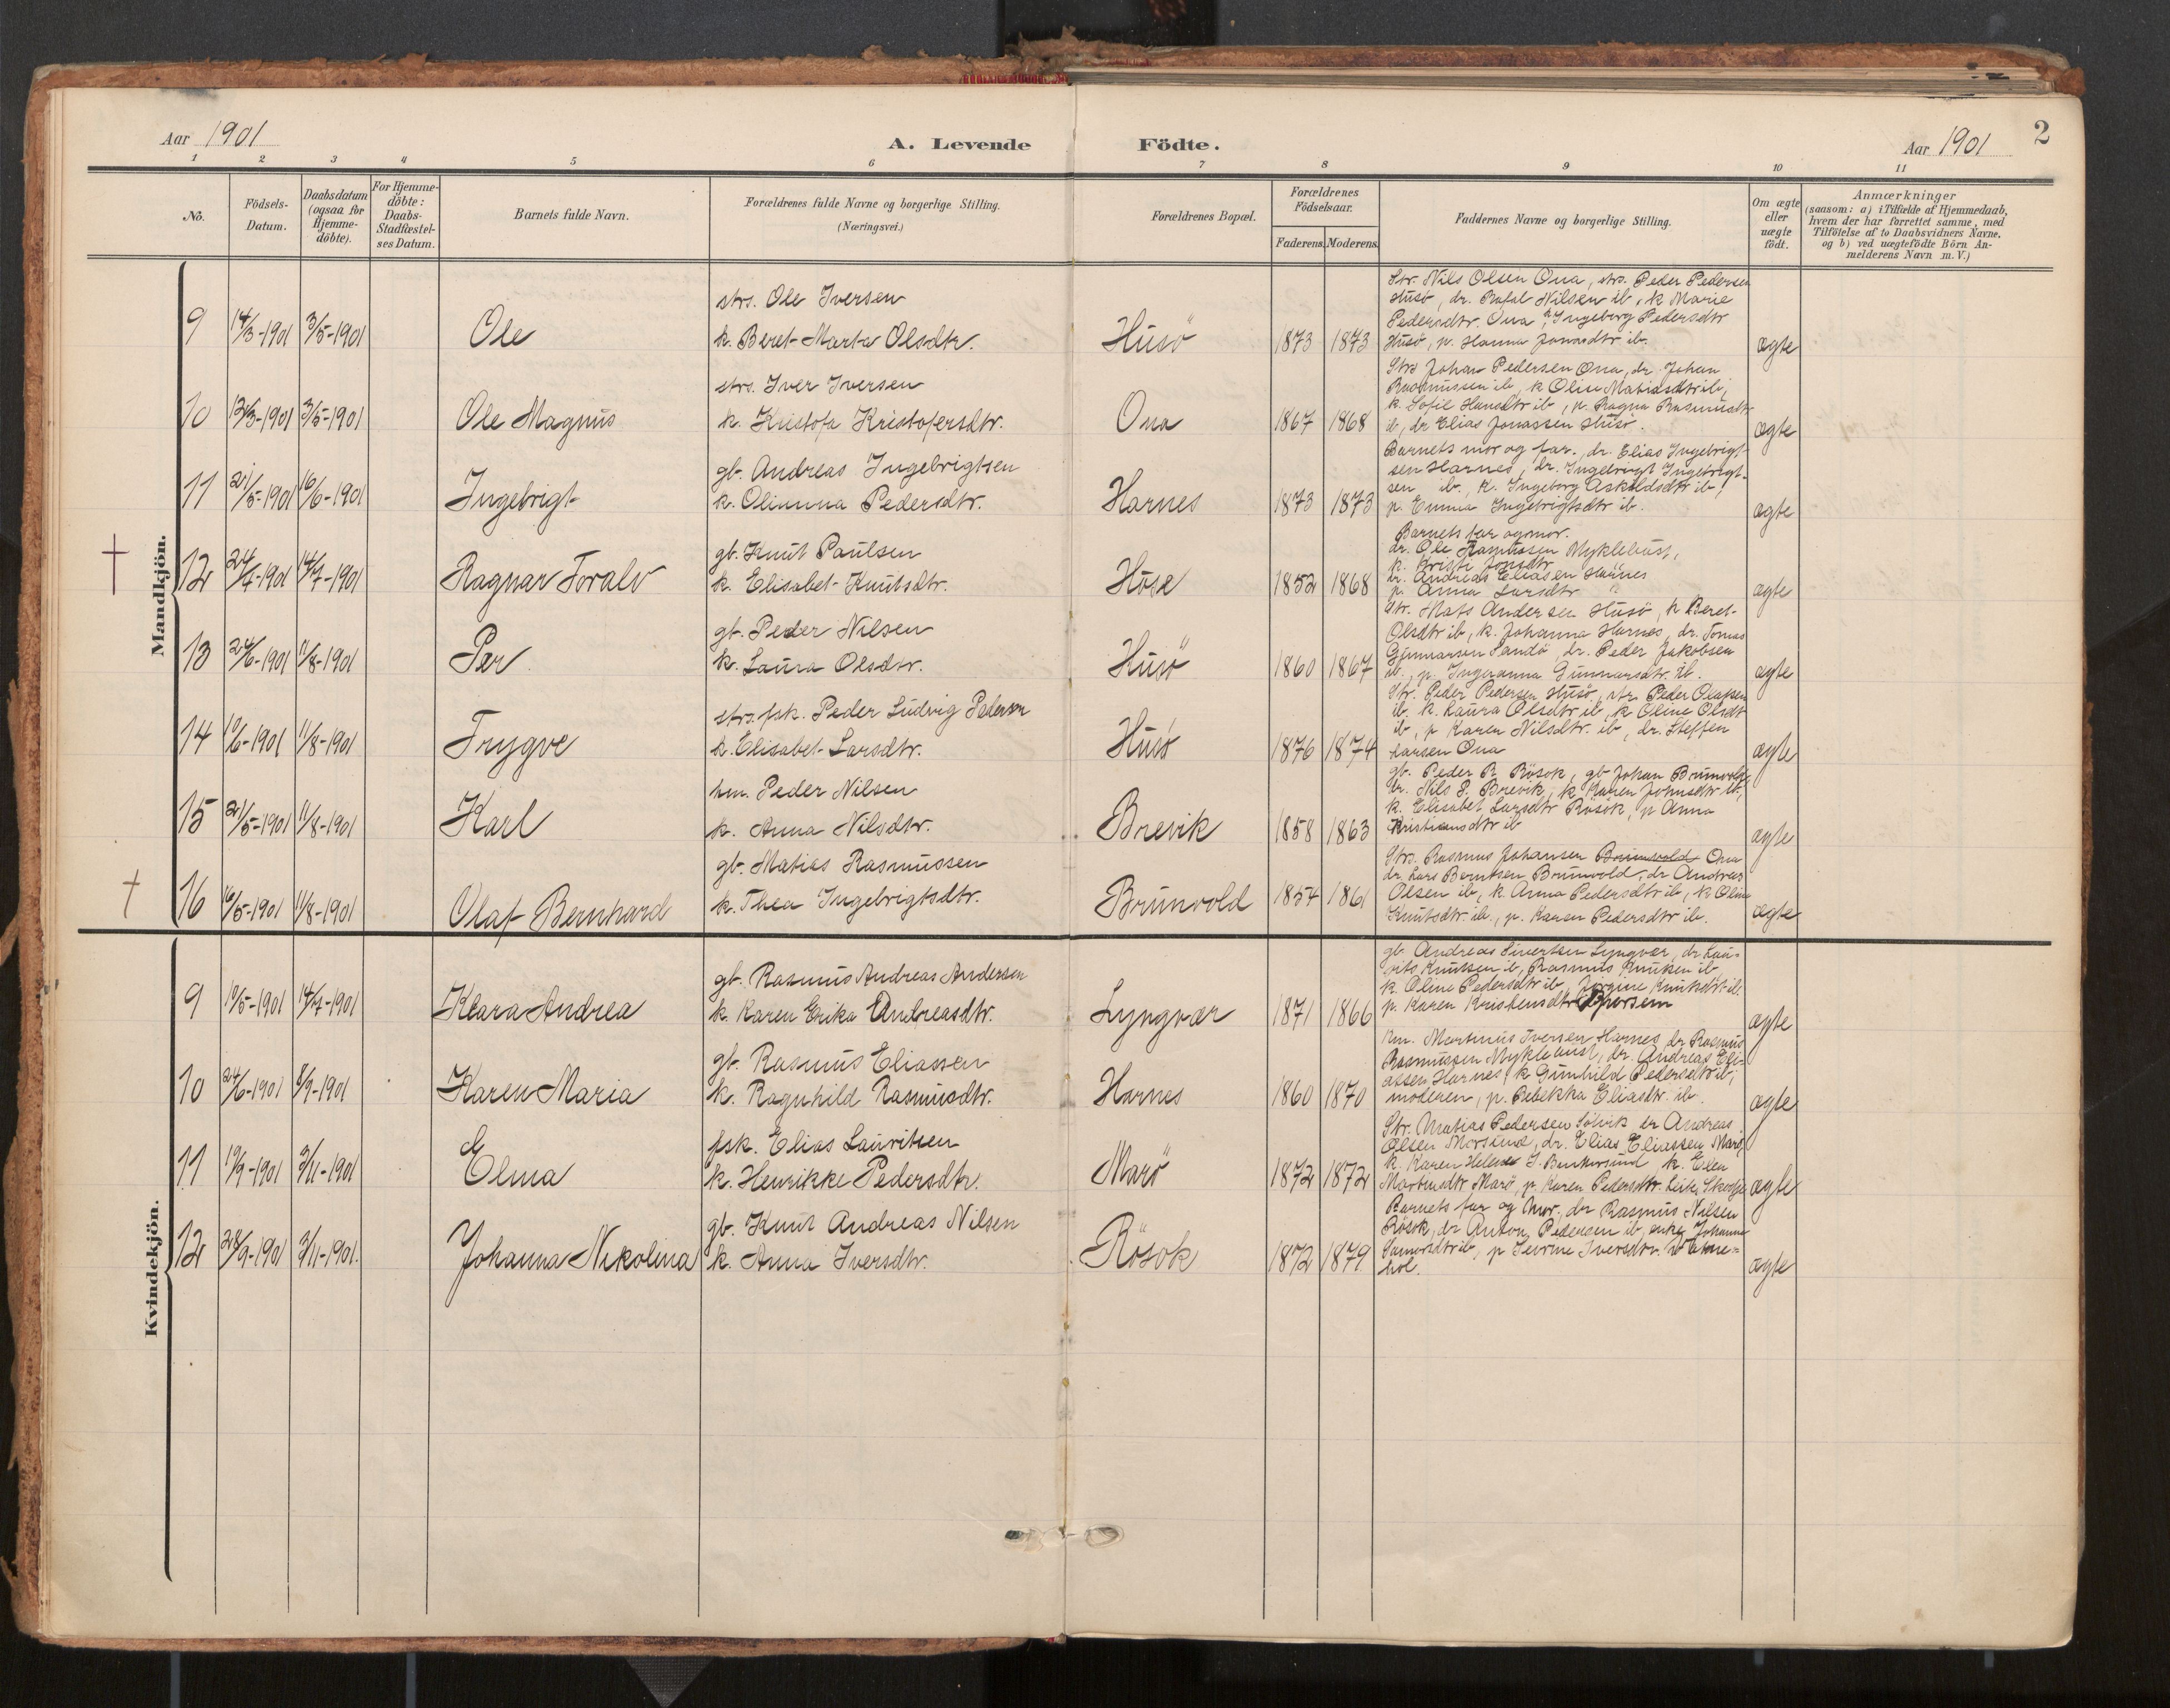 Aar 1901
A. Levende Födte.
Aar 1901
2
1 2 3 4 5 6 7 8 9 10 11
No.
Födsels-
Datum.
Daabsdatum
(ogsaa for
Hjemme-
döbte).
For Hjemme-
döbte:
Daabs-
Stadfæstel-
ses Datum.
Barnets fulde Navn.
Forældrenes fulde Navne og borgerlige Stilling.
(Næringsvei.)
Forældrenes Bopæl.
Forældrenes
Födselsaar.
Faderens. Moderens.
Faddernes Navne og borgerlige Stilling.
Om ægte
eller
uægte
födt.
Anmærkninger
(saasom: a) i Tilfælde af Hjemmedaab,
hvem der har forrettet samme, med
Tilföielse af to Daabsvidners Navne,
og b) ved uægtefödte Börn An-
melderens Navn m.V.)
Mandkjön.
9 14/3-1901 3/5-1901 Ole
strs. Ole Iversen
k. Beret-Marta Olsdtr.
Husö 1873 1873
Str. Nils Olsen Ona, strs. Peder Pedersen
Husö, dr. Rafal Nilsen ib, k Marie
Pedersdtr. Ona, Ingeborg Pedersdtr
Husö, p. Hanna Jonasdtr ib.
ægte
10 3/5-1901 Ole Magnus
strs. Iver Iversen
k. Kristofa Kristofersdtr.
Ona 1867 1868
Strs Johan Pedersen Ona, dr. Johan
Rasmussen ib, k Oline Matiasdtr ib,
k. Sofie Hansdtr ib, p. Ragna Rasmusdtr
ib, dr Elias Jonassen Husö.
ægte
11 21/5-1901 16/6-1901 Ingebrigt
gb. Andreas Ingebrigtsen
k. Olianna Pedersdtr.
Harnes 1873 1873
Barnets mor og far., dr. Elias Ingebrigt-
sen Harnes, dr. Ingebrigt Ingebrigt-
sen ib., k. Ingeborg Askildsdtr ib,
p. Emma Ingebrigtsdtr ib.
ægte
12 14/7-1901 Ragnar Toralv
gb. Knut Paulsen
k. Elisabet Knutsdtr.
Huse 1852 1868
Barnets far og mor.
dr. Ole Rasmussen Myklebust,
k. Kristi Jonsdtr
dr. Andreas Eliasen Harnes
p. Anna Larsdtr
ægte
13 24/6-1901 11/8-1901 Per
gb. Peder Nilsen
k. Laura Olsdtr.
Husö 1860 1867
Str. Mats Andersen Husö, k Beret-
Olsdtr ib, k. Johanna Harnes, dr. Tomas
Gunnarsen Sandö, dr. Peder Jakobsen
ib., p. Ingeranna Gunnarsdtr. ib.
ægte
14 10/6-1901 11/8-1901 Trygve
strs. fsk. Peder Ludvig Pedersen
k. Elisabet Larsdtr.
Husö 1876 1874
Str. Peder Pedersen Husö, str. Peder Olafsen
ib. k. Laura Olsdtr ib, k Oline Olsdtr
ib, p Karen Nilsdtr. ib, dr. Steffen
Larsen Ona
ægte
15 21/5-1901 11/8-1901 Karl
hm. Peder Nilsen
k. Anna Nilsdtr.
Brevik 1858 1863
gb. Peder R. Rösok, gb Johan Brunvold,
dr. Nils P. Brevik, k Karen Johnsdtr ib,
k. Elisabet Larsdtr Rösok, p Anna
Kristiansdtr ib
ægte
16 16/5-1901 11/8-1901 Olaf Bernhard
gb. Matias Rasmussen
k. Thea Ingebrigtsdtr.
Brunvold 1854 1861
Strs. Rasmus Johansen Brunvold Ona
dr. Lars Berntsen Brunvold, dr Andreas
Olsen ib, k Anna Pedersdtr ib, k Oline
Knutsdtr. ib., p. Karen Pedersdtr ib.
ægte
Kvindekjön.
9 10/5-1901 14/7-1901 Klara Andrea
gb. Rasmus Andreas Andersen
k. Karen Erika Andreasdtr.
Lyngvær 1871 1866
gb. Andreas Sivertsen Lyngvær, dr Lau-
rits Knutsen ib, Rasmus Knutsen ib
k. Oline Pedersdtr ib, Jörgine Knutsdtr ib.
p. Karen Kristensdtr Bjørsem
ægte
10 24/6-1901 8/9-1901 Karen Maria
gb. Rasmus Eliassen
k. Ragnhild Rasmusdtr.
Harnes 1860 1870
Km. Martinus Iversen Harnes dr Rasmus
Rasmussen Myklebust, dr. Andreas Eli-
assen Harnes, k Gunhild Pedersdtr ib,
moderen, p. Rebekka Eliasdtr. ib.
ægte
11 19/9-1901 3/11-1901 Elma
fsk. Elias Lauritsen
k. Henrikke Pedersdtr.
Marö 1872 1872
Str. Matias Pedersen Sölvik dr Andreas
Olsen Morsund, dr. Elias Eliassen Marö,
k. Karen Helene J. k. Elen
Martinsdtr Marö, p. Karen Pedersdtr.
ægte
12 28/9-1901 3/11-1901. Johanna Nikolina
gb. Knut Andreas Nilsen
k. Anna Iversdtr.
Rösok 1872 1879
Barnets far og mor. dr Rasmus Nilsen
Rösok, dr Anton Pedersen ib, enke Johanna
ib, p Iversdtr.
hol.
ægte